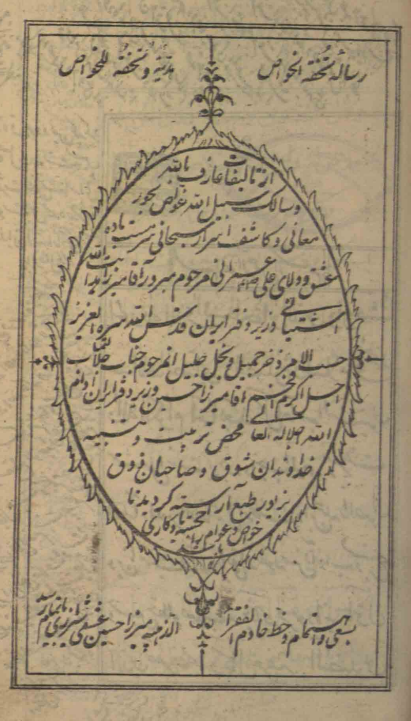 رساله تحفة الخواص
هدیة و تحفة للخواص
از تالیفات عارف بالله
و سالک سبیل الله غواص بحور
معانی و کاشف اسرار سبحانی سرمست باده
عشق و ولای علی عمرانی مرحوم مبرور آقا میرزا هدایت الله
آشتیانی وزیر دفتر ایران قدس الله سره العزیز
حسب الامر ذخر جمیل و نجل جلیل آنمرحوم جناب جلالتمآب
اجل اکرم افخم آقا میرزا حسین وزیر دفتر ایران ادام
الله اجلاله العالی محض تربیت و تنبیه
خداوندان شوق و صاحبان ذوق
بزیور طبع آراسته گردید تا
خواص و عوام را یادگاری
باشد
بسعی و اهتمام و خط خادم الفقراء
الذهبیه میرزا حسین عشقی شیرازی باتمام رسید